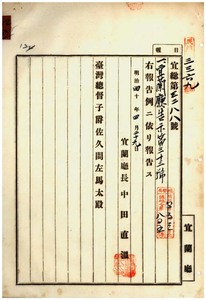 三三六九
報
宜總第三二八八號
一宜蘭廳告示第三十三號
右報告例ニ依リ報告ス
明治四十年四月二十九日
宜蘭廳長中田直溫
臺灣總督子爵佐久間左馬太殿
宜蘭廳